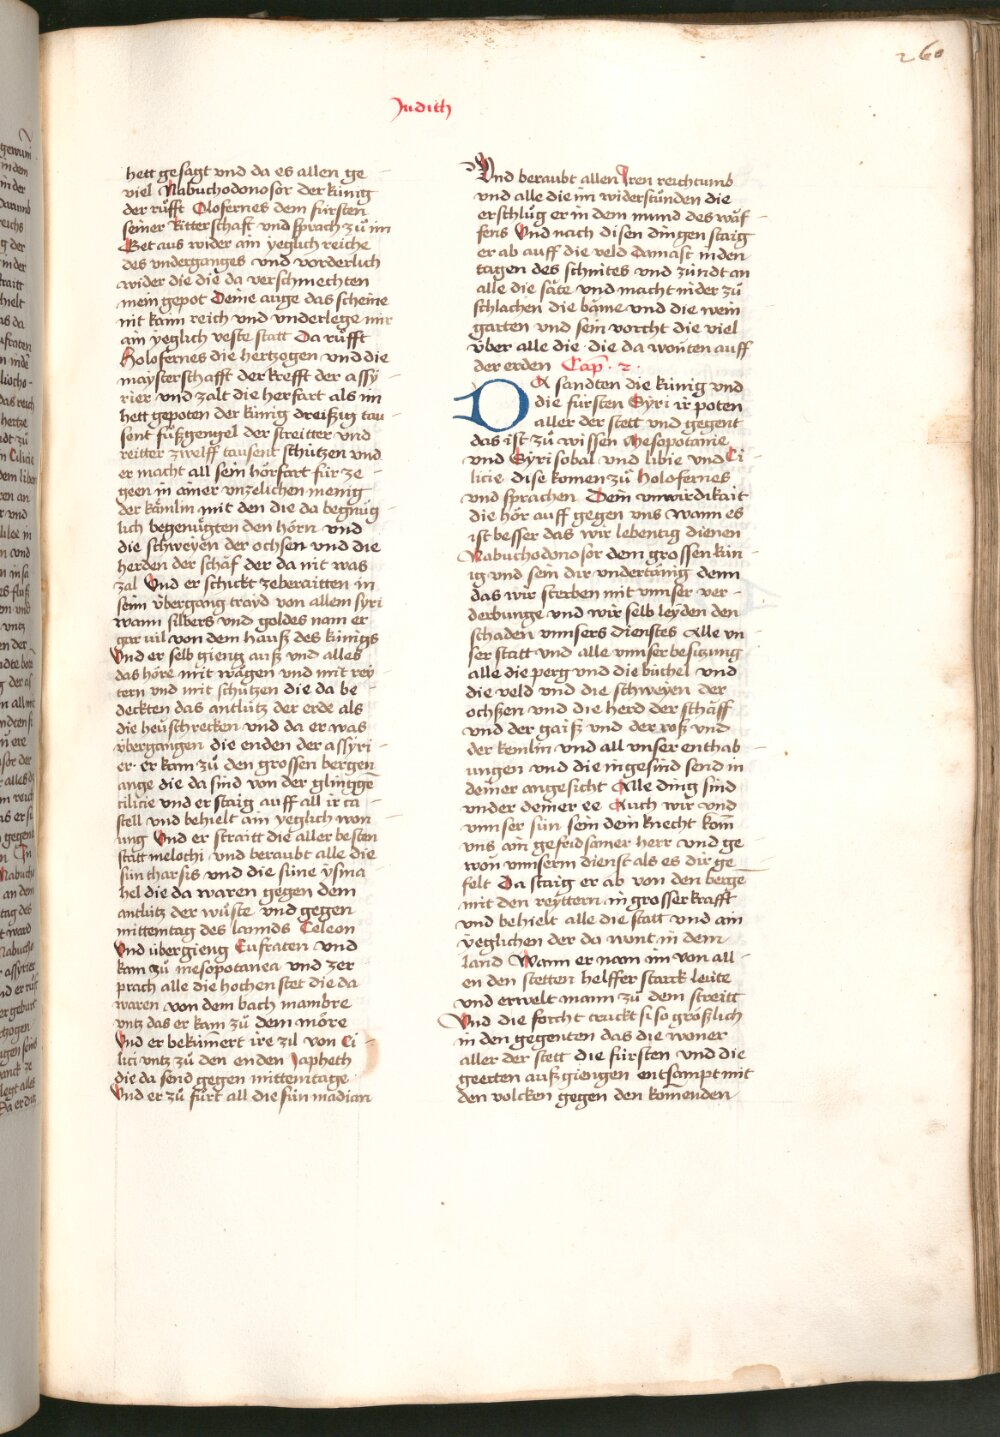 260
Judith
hett gesagt vnd da es allen ge
viel Nabuchodonosor der künig
der rüfft Olofernes dem fürsten
seiner Ritterschafft vnd sprach zů im
Get aus wider ain yeglich reiche
des vnderganges vnd vorderlich
wider die die da verschmechten
mein gepot Deine auge das scheine
nit kainn reich vnd vnderlege mir
ain yeglich veste statt Da rüfft
Holofernes die hertzogen vnd die
maysterschafft der krefft der assy
rier vnd zalt die herfart als im
hett gepoten der künig dreiszig tau
sent füszgengel der streitter vnd
reitter zwelff tausent schützen vnd
er macht all sein hörfart für ze
geen in ainer vnzelichen menig
der kämlin mit den die da begnüg
lich begenügten den hörn vnd
die schweyen der ochsen vnd die
herden der schäf der da nit was
zal Vnd er schickt zeberaitten in
seim übergang trayd von allem syri
wann silbers vnd goldes nam er
gar vil von dem hausz des künigs
Vnd er selb gieng ausz vnd alles
das höre mit wägen vnd mit rey
tern vnd mit schützen die da be
deckten das antlütz der erde als
die heuschrecken vnd da er was
übergangen die enden der assyri
er er kam zů den grossen bergen
ange die da sind von der glingge
cilicie vnd er staig auff all ir ca
stell vnd behielt ain yeglich won
ung Vnd er straitt die aller besten
statt melochi vnd beraubt alle die
sün tharsis vnd die süne ysma
hel die da waren gegen dem
antlütz der wüste vnd gegen
mittemtag des lannds Celeon
Vnd übergieng Eufraten vnd
kam zů mesopotanea vnd zer
prach alle die hochen stet die da
waren von dem bach mambre
vntz das er kam zů dem möre
Vnd er bekümert ire zil von Ci
lici vntz zů den enden Japheth
die da sönd gegen mittemtage
Vnd er zů fürt all die sün madian
Vnd beraubt allen Iren reichtumb
vnd alle die im widerstünden die
erschlůg er in dem mund des waf
fens Vnd nach disen dingen staig
er ab auff die veld Damast in den
tagen des schnites vnd zündt an
alle die säte vnd macht nider zů
schlachen die bäme vnd die wein
garten vnd sein vorcht die viel
über alle die die da wonten auff
der erden Cap. 2.
DA sandten die künig vnd
die fürsten Syri ir poten
aller der stett vnd gegent
das ist zů wissen Mesopotanie
vnd Syrisobal vnd libie vnd Ci
licie dise komen zů Holofernes
vnd sprachen Dein vnwirdikait
die hör auff gegen vns wann es
ist besser das wir lebentig dienen
Nabuchodonosor dem grossen kün
ig vnd sein dir vndertänig denn
das wir sterben mit vnnser ver
derbunge vnd wir selb leyden den
schaden vnnsers dienstes Alle vn
ser statt vnd alle vnnser besitzung
alle die perg vnd die büchel vnd
die veld vnd die schweyen der
ochszen vnd die herd der schäff
vnd der gaisz vnd der rosz vnd
der kemlin vnd all vnser enthab
ungen vnd die ingesind send in
deiner angesicht Alle ding sind
vnder deiner ee Auch wir vnd
vnnser sün sein dein knecht kom̄
vns ain gefridsamer herr vnd ge
won vnnserm dienst als es dir ge
felt Da staig er ab von den bergē
mit den reyttern in grosser krafft
vnd behielt alle die statt vnd ain
yeglichen der da wont in dem
land Wann er nam im von all
en den stetten helffer starck leute
vnd erwelt mann zů dem streitt
Vnd die forcht truckt si so gröszlich
in den gegenten das die woner
aller der stett die fürsten vnd die
geerten ausz giengen entsamptmit
den volcken gegen den komenden